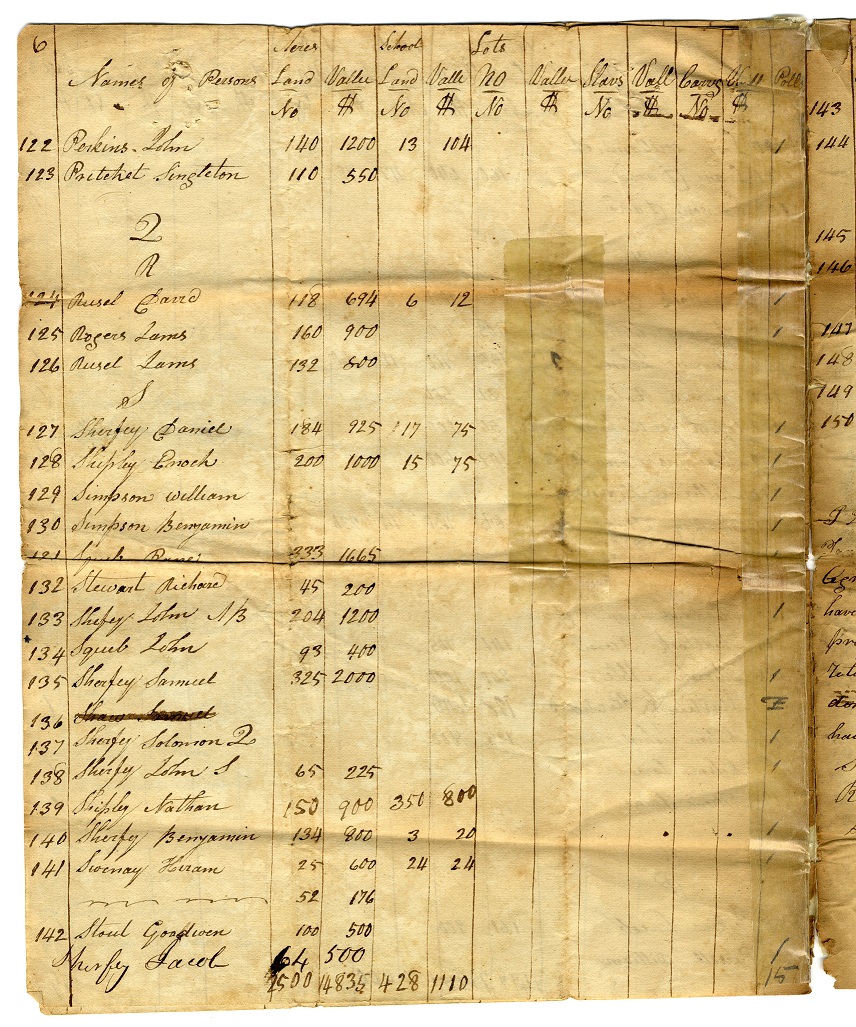 6 Acres School Lots
Names of Persons Land Valle Land Valle No Valle Slavs Vall Carrs Polls
No $ No $ No $ No $ No $
122 Perkins John 140 1200 13 104 1
123 Pritchet Singleton 110 550
Q
R
124 Rusel David 118 694 6 12 1
125 Rogers Jams 160 900 1
126 Rusel Jams 132 800
S
127 Sherfey Daniel 184 925 17 75 1
128 Shipley Enoch 200 1000 15 75 1
129 Simpson William 1
130 Simpson Benjamin 1
131 333 1665
132 Stewart Richard 45 200
133 Shefey John 204 1200 1
134 Squib John 93 400
135 Sherfey Samuel 325 2000 1
136 Shaw Samuel
137 Sherfey Solomon Q 1
138 Sherfy John S 65 225 1
139 Shipley Nathan 150 900 350 800
140 Sherfy Benjamin 134 800 3 20 1
141 Swenay Hiram 25 600 24 24 1
52 176
142 Stout Goodwen 100 500
Sherfey Jacob 64 500 1
2500 14835 428 1110 15
143
144
145
146
147
148
149
150
have